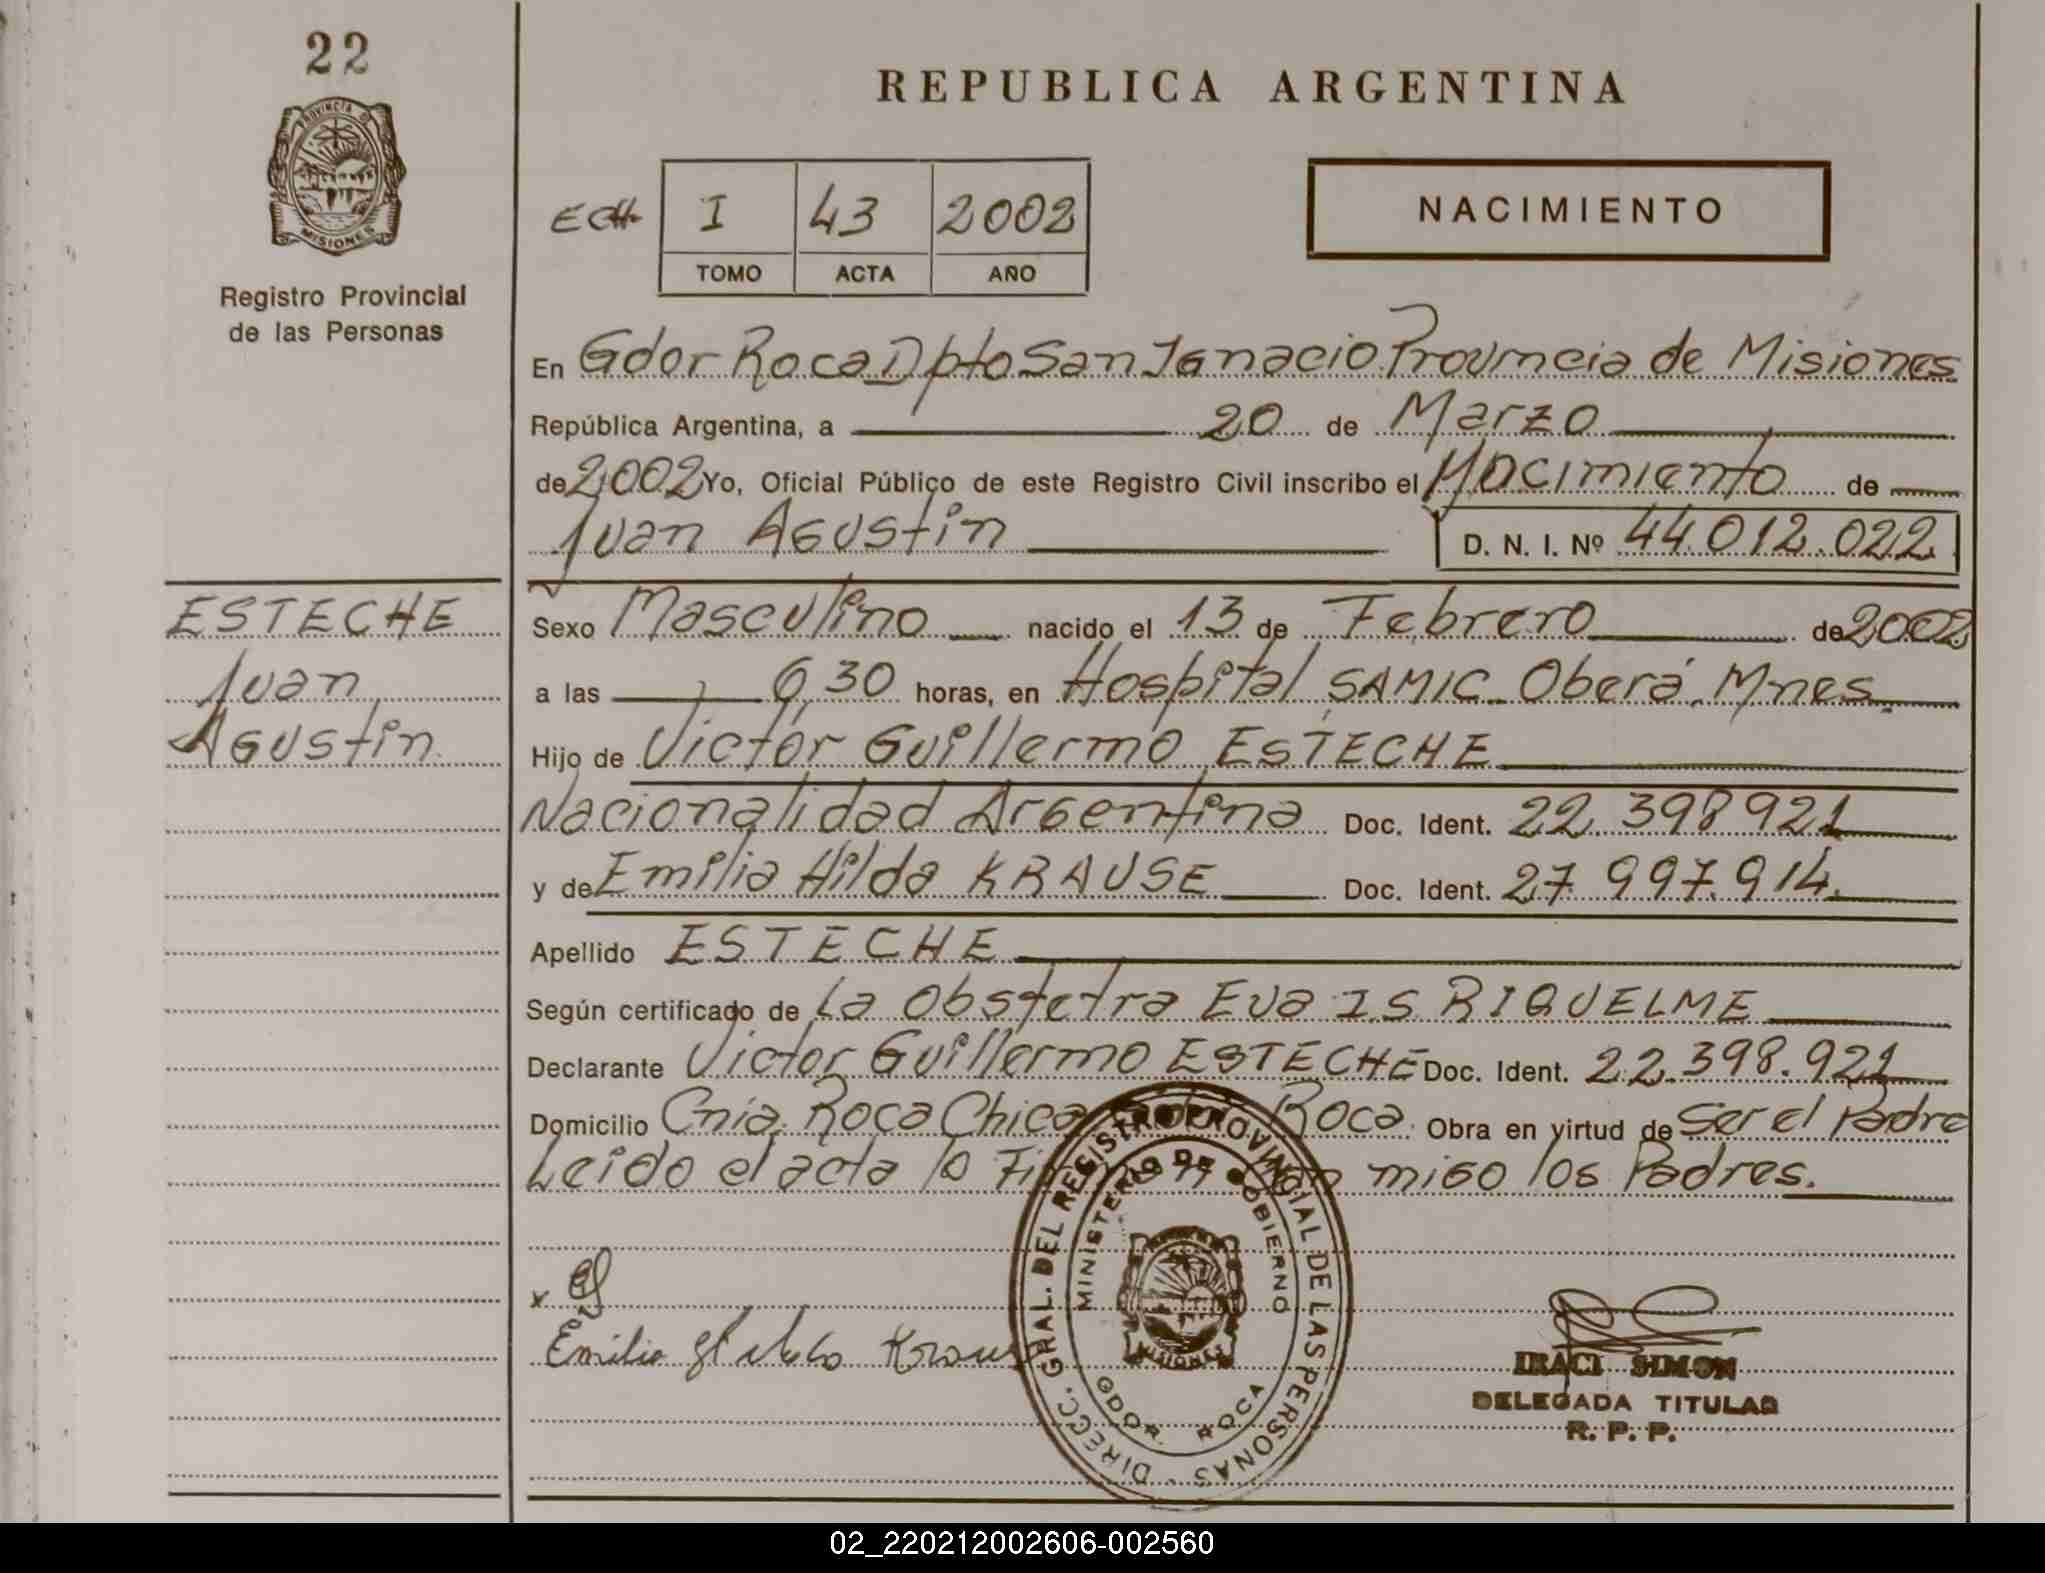 22
PROVINCIA DE
MISIONES
Registro Provincial
de las Personas
REPUBLICA ARGENTINA
I 43 2002
TOMO ACTA AÑO
NACIMIENTO
En Gdor Roca Dpto San Ignacio Provincia de Misiones
República Argentina, a 20 de Marzo
de 2002 Yo, Oficial Público de este Registro Civil inscribo el Nacimiento de
Juan Agustin D. N. I. Nº 44.012.022
ESTECHE
Juan
Agustin
Sexo Masculino nacido el 13 de Febrero de 2002
a las 6,30 horas, en Hospital SAMIC Oberá, Mnes
Hijo de Victor Guillermo ESTECHE
Nacionalidad Argentina Doc. Ident. 22.398921
y de Emilia Hilda KRAUSE Doc. Ident. 27.997.914.
Apellido ESTECHE
Según certificado de La Obstetra Eva IS RIQUELME
Declarante Victor Guillermo ESTECHE Doc. Ident. 22.398.921
Domicilio Cnia. Roca Chica Roca. Obra en virtud de Ser el Padre
Leido el acta lo migo los Padres.
x
Emilia Hilda Kraus
DIRECC. GRAL. DEL REGISTRO PROVINCIAL DE LAS PERSONAS
MINISTERIO DE GOBIERNO
MISIONES
GDOR. ROCA
IRACI SIMON
DELEGADA TITULAR
R. P. P.
02_220212002606-002560